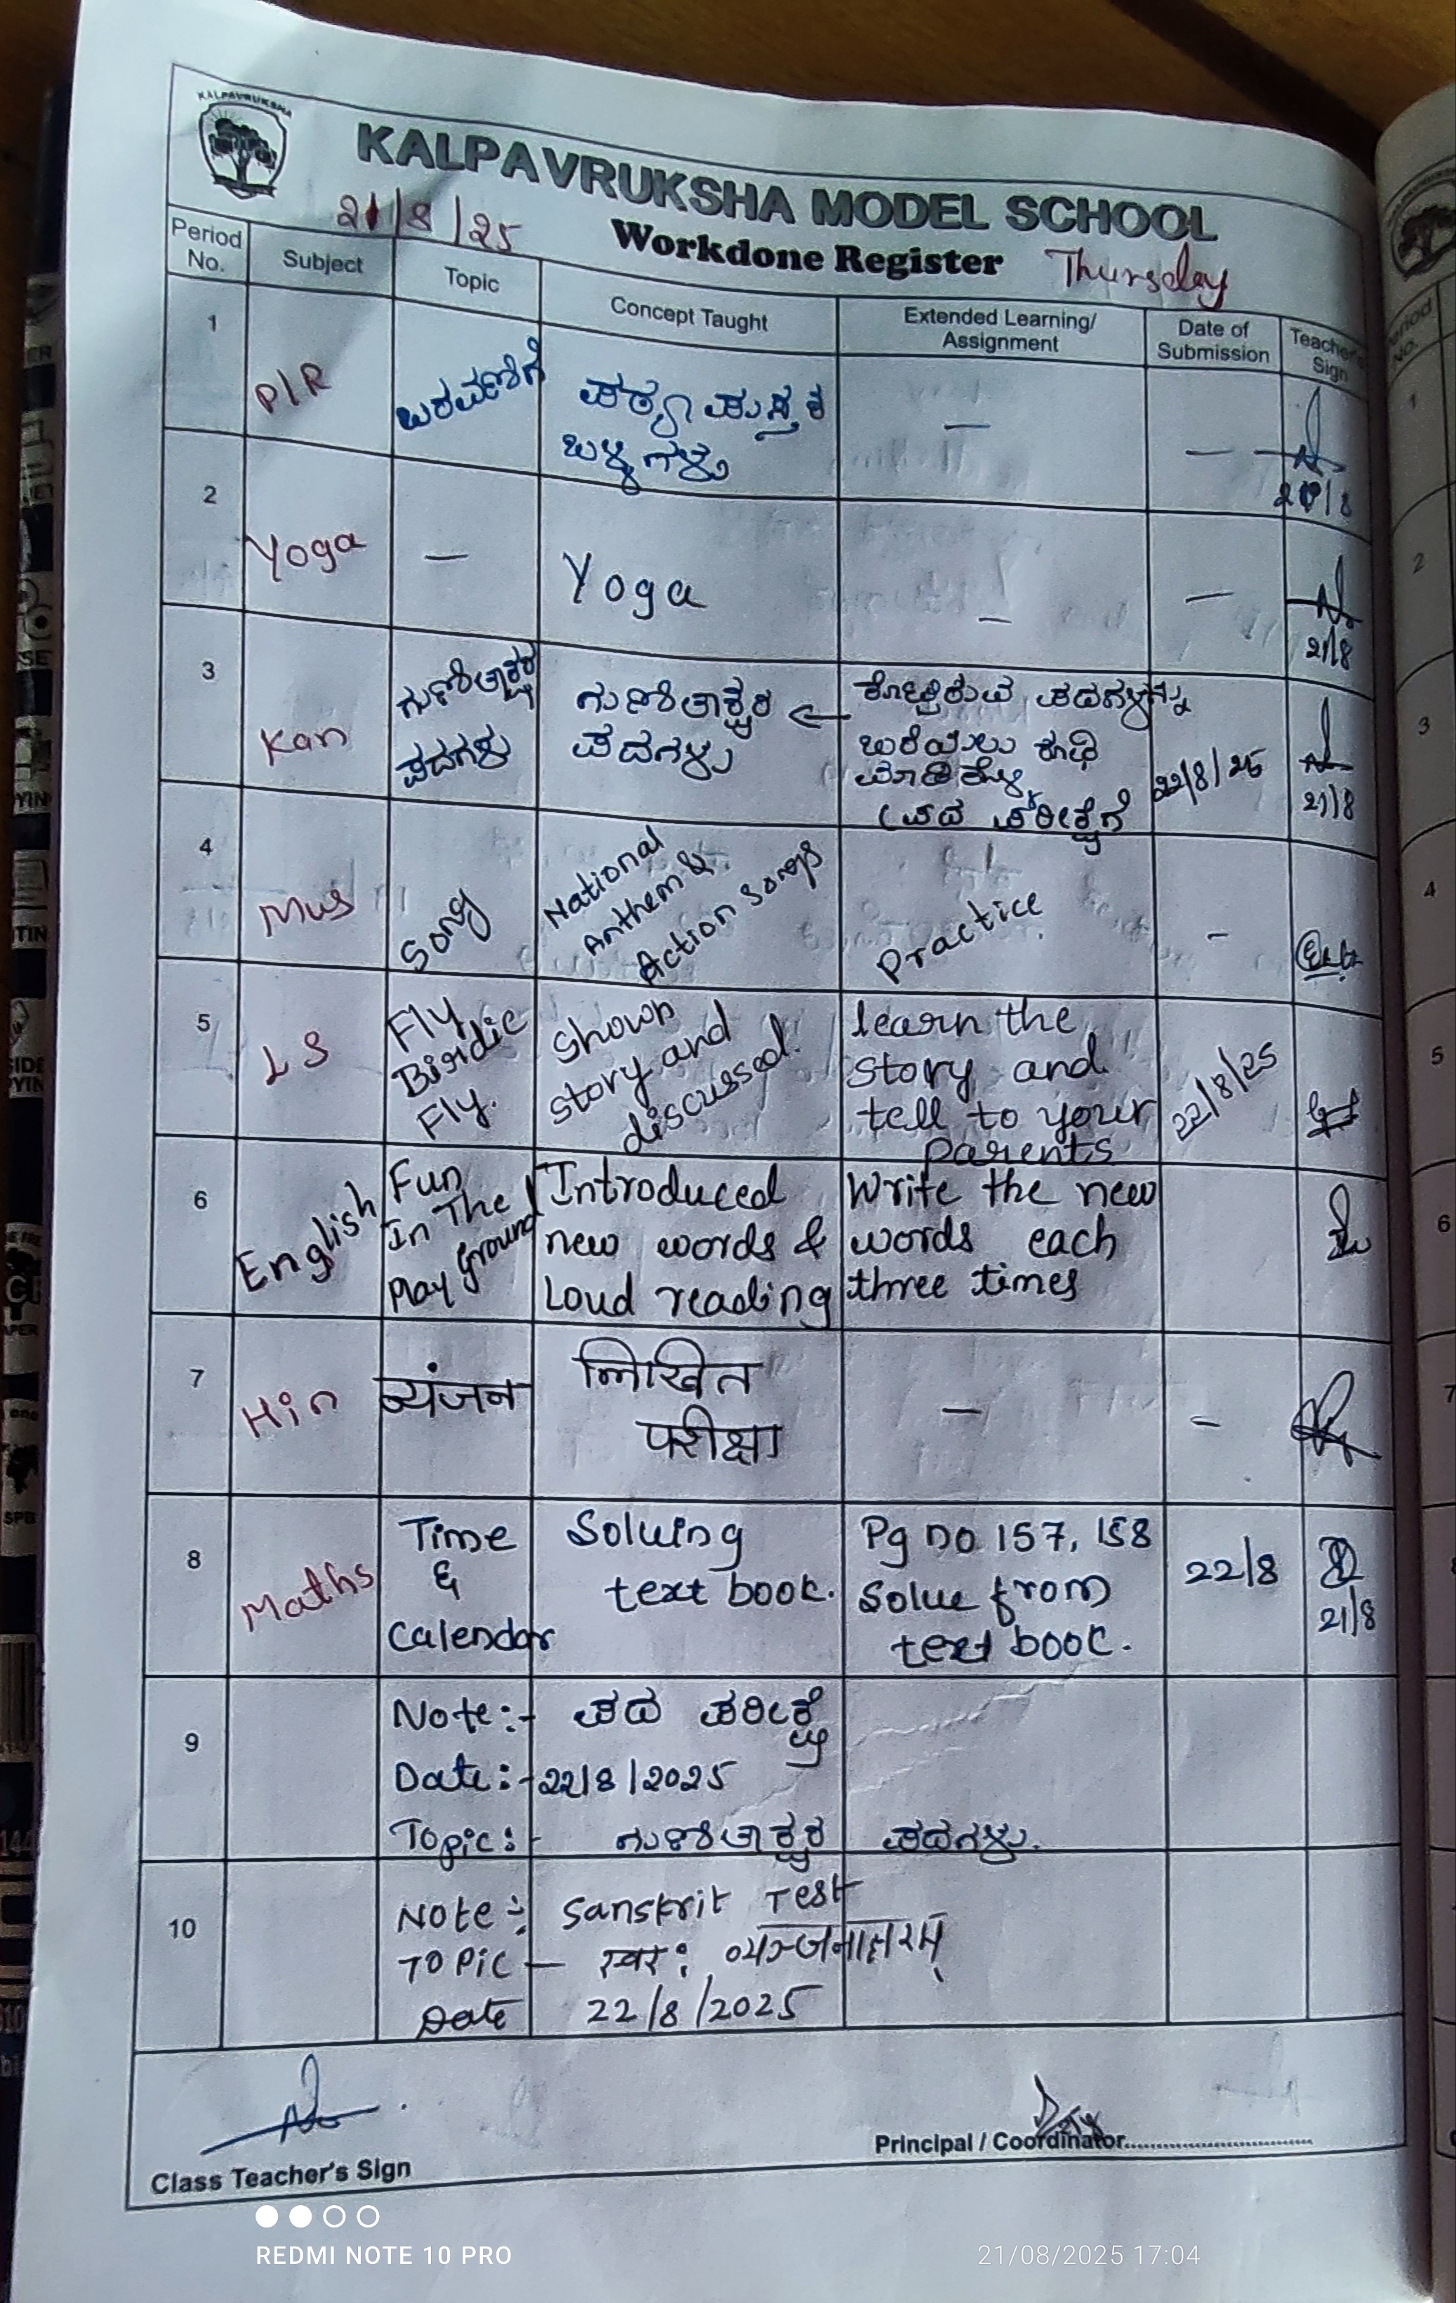 KALPAVRUKSHA
KALPAVRUKSHA MODEL SCHOOL
21/8/25
Workdone Register
Thursday
Period No.
Subject
Topic
Concept Taught
Extended Learning/
Assignment
Date of
Submission
Teacher's
Sign
1
P/R
ಬರವಣಿಗೆ
ಪಠ್ಯ ಪುಸ್ತಕ
ಬಳ್ಳಿಗಳು
—
—
2
Yoga
—
Yoga
—
—
21/8
3
Kan
ಗುಣಿತಾಕ್ಷರ
ಪದಗಳು
ಗುಣಿತಾಕ್ಷರ
ಪದಗಳು
ಕೊಟ್ಟಿರುವ ಪದಗಳನ್ನು
ಬರೆಯಲು ರೂಢಿ
ಮಾಡಿಕೊಳ್ಳಿ
(ಪದ ಪರೀಕ್ಷೆಗೆ
22/8/25
21/8
4
Mus
Song
National
Anthem &
Action Songs
Practice
-
5
LS
Fly
Birdie
Fly.
Shown
story and
discussed.
learn the
story and
tell to your
parents
22/8/25
6
English
Fun
In The
Play Ground
Introduced
new words &
Loud reading
Write the new
words each
three times
7
Hin
व्यंजन
लिखित
परीक्षा
—
—
8
Maths
Time
&
Calendar
Solving
text book.
Pg no 157, 158
Solve from
text book.
22/8
21/8
9
Note:- ಪದ ಪರೀಕ್ಷೆ
Date:- 22/8/2025
Topic:- ಗುಣಿತಾಕ್ಷರ ಪದಗಳು.
10
Note:- Sanskrit Test
Topic — स्वर: व्यञ्जनाक्षरम्
Date 22/8/2025
Class Teacher's Sign
Principal / Coordinator
REDMI NOTE 10 PRO
21/08/2025 17:04